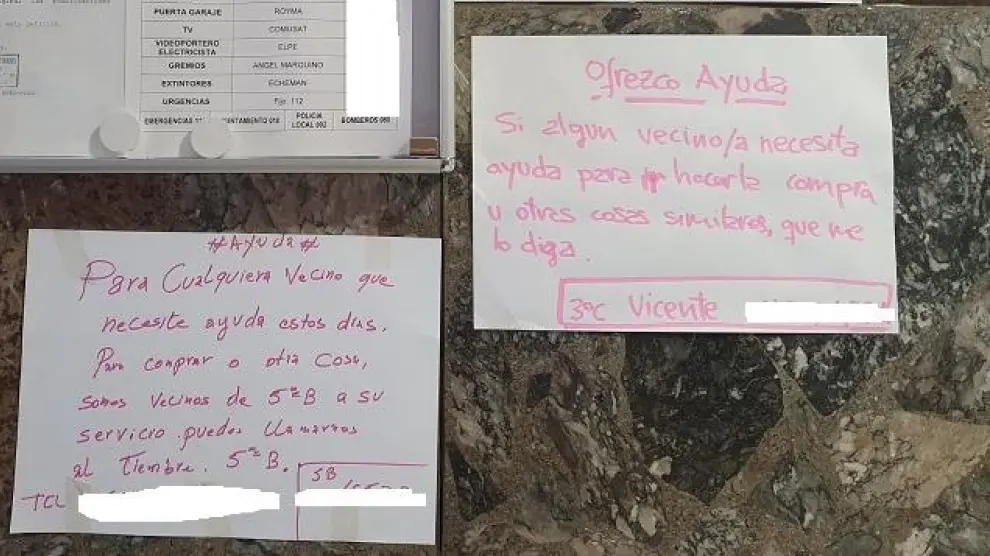 PUERTA GARAJE ROYMA
TV COMUSAT
VIDEOPORTERO ELPE
ELECTRICISTA
GREMIOS ANGEL MARQUINO
EXTINTORES ECHEMAN
URGENCIAS Fijo 112
POLICIA
LOCAL 092
BOMBEROS 080
Ofrezco Ayuda
Si algun vecino/a necesita
ayuda para hacer la compra
u otras cosas similares, que me
lo diga.
3ºC Vicente
#Ayuda#
Para Cualquiera Vecino que
necesite ayuda estos dias.
Para comprar o otra Cosa,
somos Vecinos de 5º B a su
servicio puedes llamarnos
al Tiembre. 5º B.
5B
TCL